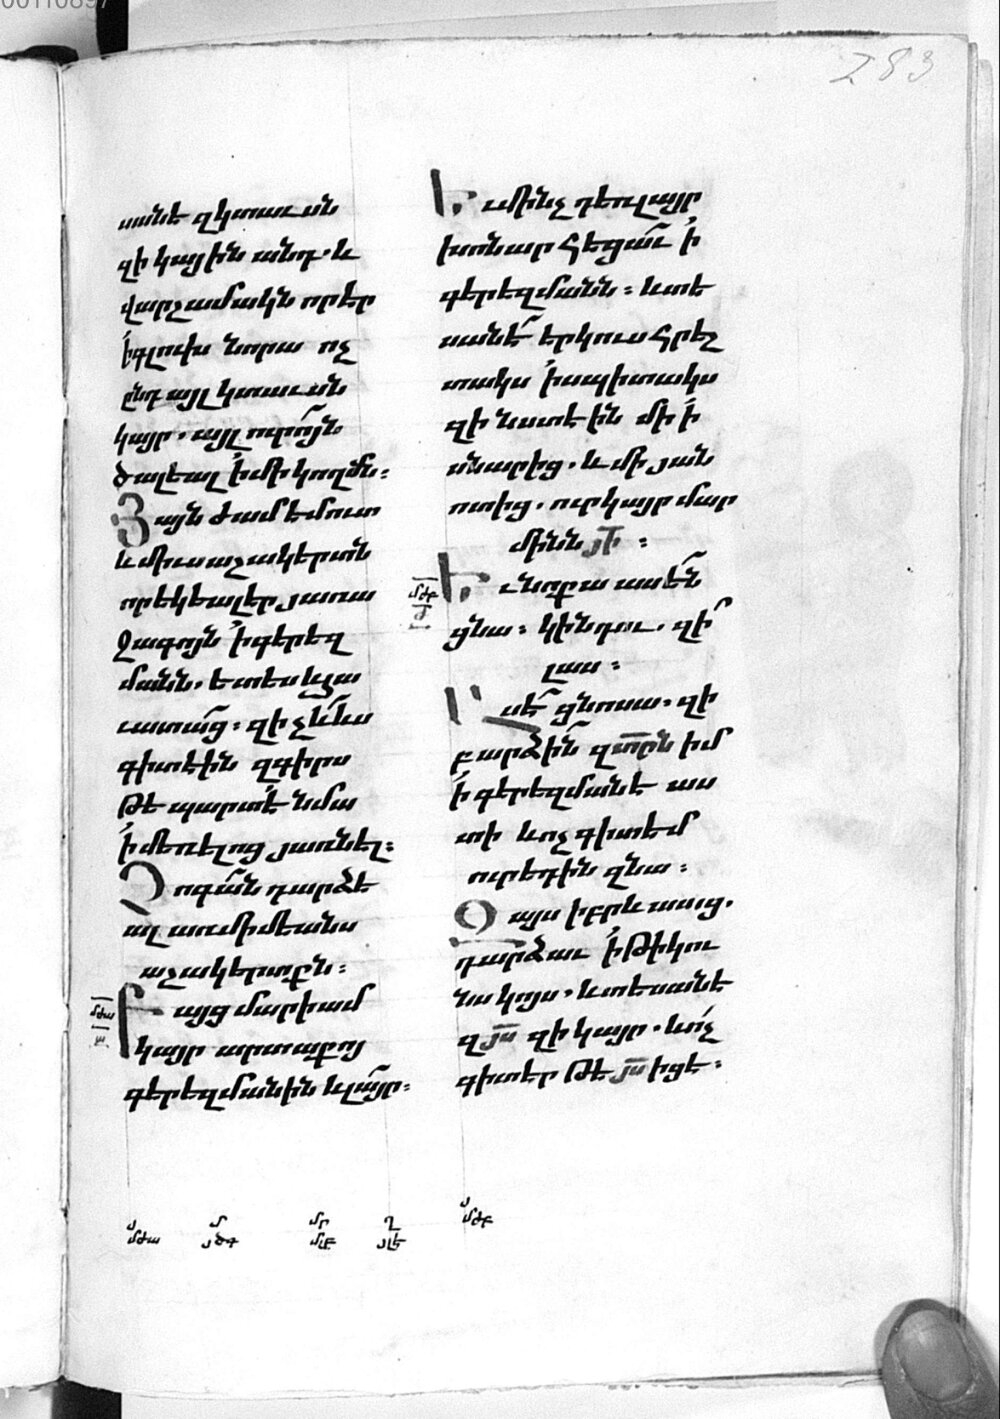 00110897
283
սանէ զկտաւսն
զի կային անդ. և
վարշամակն որ էր
՛ի գլուխ նորա ոչ
ընդ այլ կտաւսն
կայր. այլ ուրոյն
ծալեալ ՛ի մի կողմն։
Յայն ժամ եմուտ
և միւս աշակերտն
որ եկեալ էր յառա
ջագոյն ՛ի գերեզ
մանն. ետես և հա
ւատաց. զի չև ևս
գիտէին զգիրս
թե պարտ է նմա
՛ի մեռելոց յառնել։
Չոգան դարձե
ալ առ միմեանս
աշակերտքն։
Բայց մարիամ
կայր արտաքոյ
գերեզմանին և լայր։
Եւ մինչ դեռ լայր
խոնարհեցաւ ՛ի
գերեզմանն։ և տե
սանէ երկուս հրեշ
տակս ՛ի սպիտակս
զի նստէին մի ՛ի
սնարից. և մի յան
ոտից. ուր կայր մար
մինն յի։
Եւ նոքա ասեն
ցնա։ կին դու. զի՞
լաս։
Ասէ ցնոսա. զի
բարձին զտրն իմ
՛ի գերեզմանէ աս
տի և ոչ գիտեմ
ուր եդին զնա։
Զայս իբրև ասաց.
դարձաւ ՛ի թիկու
նս կոյս. և տեսանէ
զյս զի կայր. և ոչ
գիտեր թե յս իցե։
մժա
մժբ